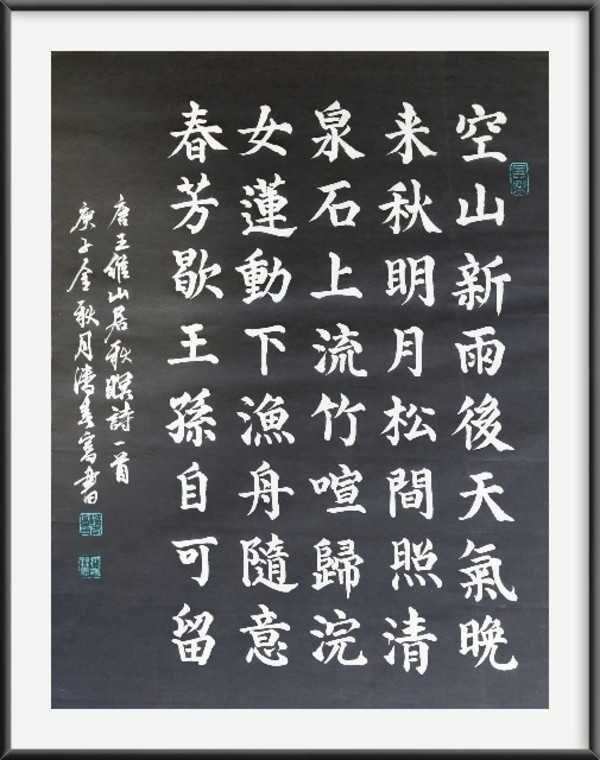 空山新雨後天氣晚
来秋明月松間照清
泉石上流竹喧歸浣
女蓮動下漁舟隨意
春芳歇王孫自可留
唐王維山居秋暝詩一首
庚子金秋月
書